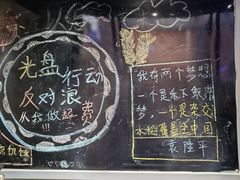 光盘
行动
反对浪
费
从我做起
我有两个梦想
一个是禾下乘凉
梦,一个是杂交
水稻覆盖全中国
袁隆平